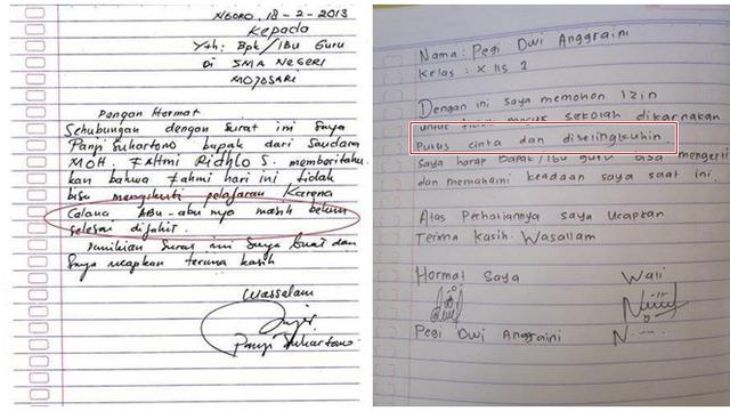 NGORO, 18 - 2 - 2013
Kepada
Yth: Bpk/Ibu Guru
Di SMA NEGERI
MOJOSARI
Dengan Hormat
Sehubungan dengan surat ini Saya
Panji Suhartono bapak dari Saudara
MOH. FAHmi Ridhlo S. memberitahu
kan bahwa Fahmi hari ini tidak
bisa mengikuti pelajaran Karena
Calana Abu-abu nya masih belum
selesai dijahit.
Demikian Surat ini Saya buat dan
Saya ucapkan terima kasih
Wassalam
Panji Suhartono
Nama: Pegi Dwi Anggraini
Kelas : X IIS 2
Dengan ini saya memohon izin
untuk tidak masuk sekolah dikarnakan
Putus cinta dan diselingkuhin.
Saya harap Bapak/Ibu guru bisa mengerti
dan memahami keadaan saya saat ini.
Atas Perhatiannya saya Ucapkan
Terima Kasih. Wasallam
Hormat Saya
Wali
Pegi Dwi Anggraini